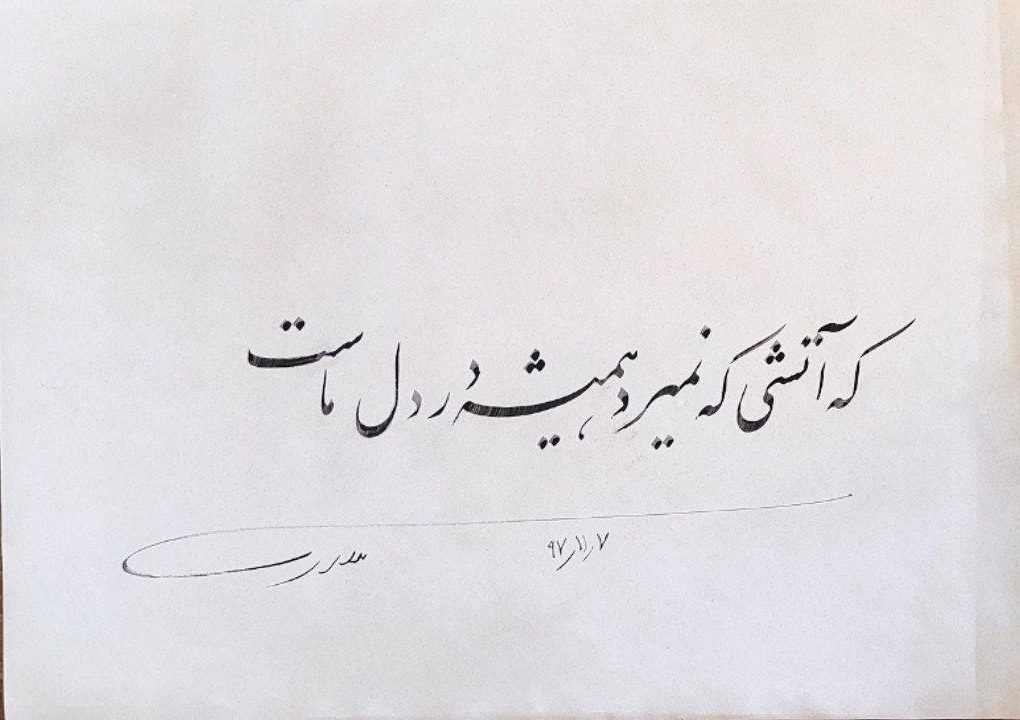 که آتشی که نمیرد همیشه در دل ماست
۹۷٫۱۱٫۷